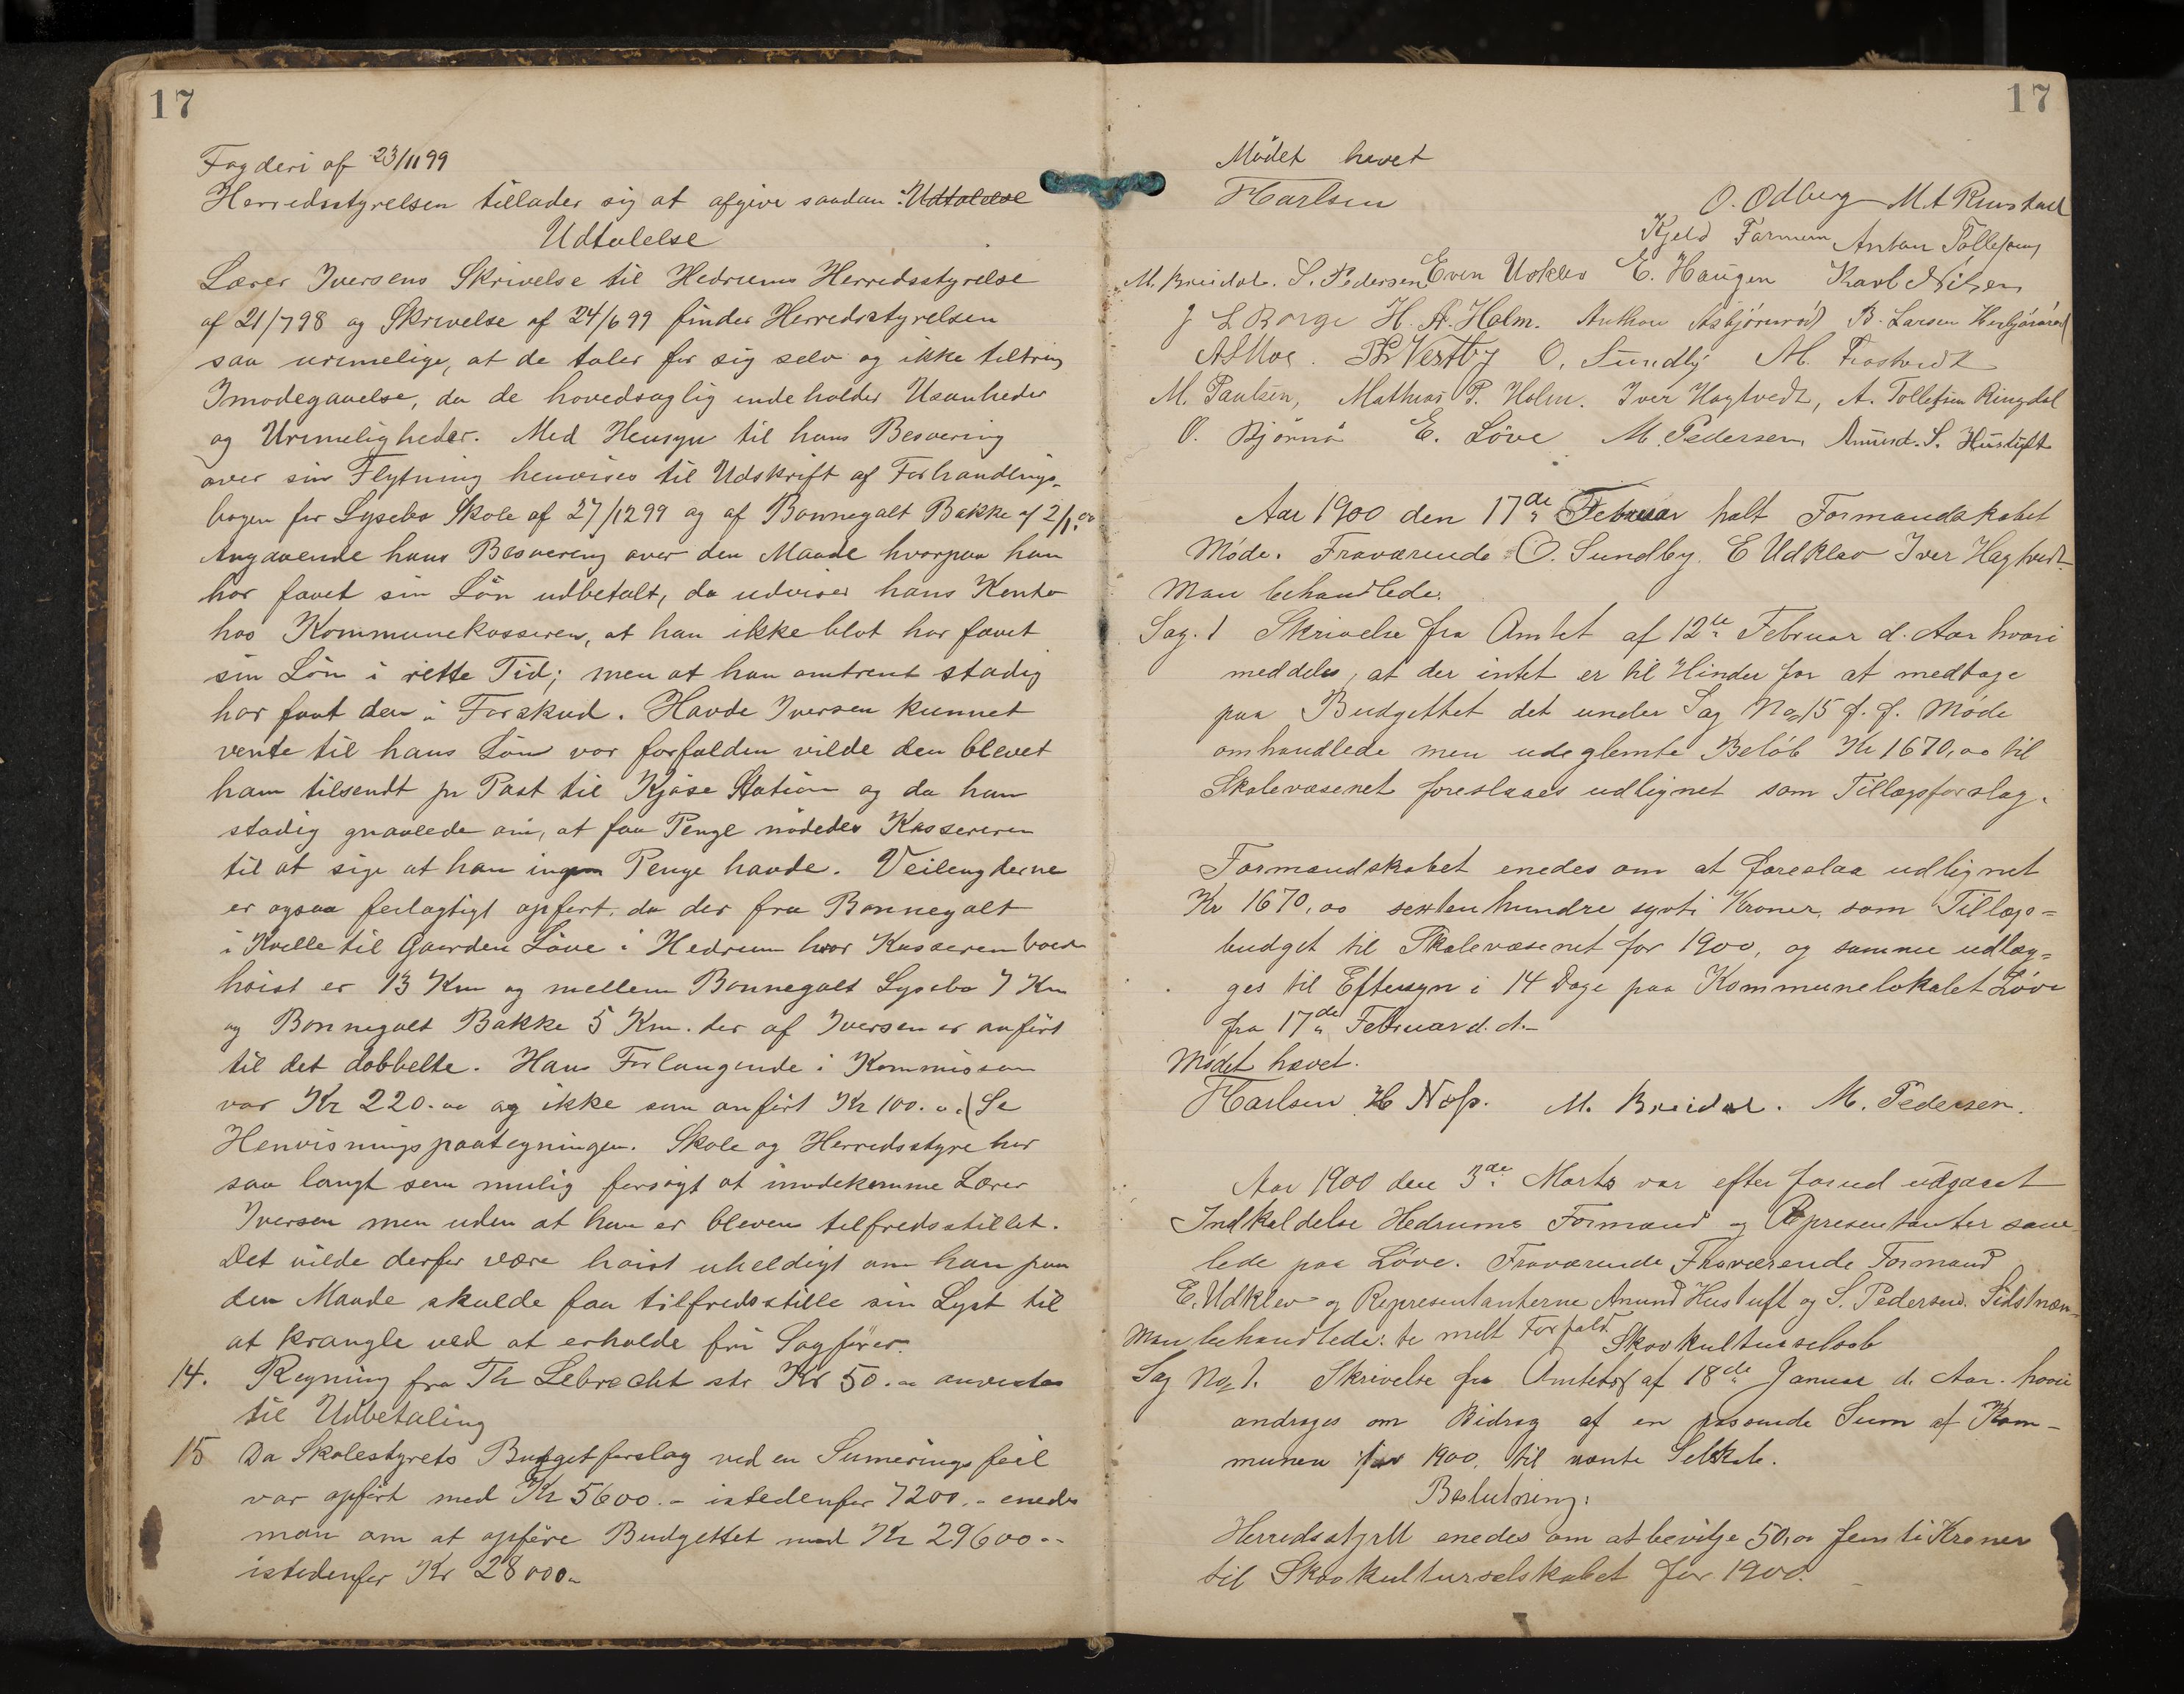 17
Fogderi af 23/11 99
Herredsstyrelsen tillader sig at afgive saadan: Udtalelse
Udtalelse
Lærer Iversens Skrivelse til Hedrums Herredsstyrelse
af 21/7 98 og Skrivelse af 24/6 99 finder Herredsstyrelsen
saa urimelige, at de taler for sig selv og ikke tiltræng
Imødegaaelse, da de hovedsaglig indeholder Usanheder
og Urimeligheder. Med Hensyn til hans Besværing
over sin Flytning henvises til Udskrift af Forhandlings-
bogen for Lysebo Skole af 27/12 99 og af Bonnegolt Bakke af 2/1.00
Angaaende hans Besværing over den Maade hvorpaa han
har faaet sin Løn udbetalt, da udviser hans Konto
hos Kommunekasseren, at han ikke blot har faaet
sin Løn i rette Tid; men at han omtrent stadig
har faat den i Forskud. Havde Iversen kunnet
vente til hans Løn var forfalden vilde den blevet
ham tilsendt pr Post til Kjøse Station og da han
stadig gnavlede om, at faa Penge nødedes Kassereren
til at sige at han ingen Penge havde. Veilengderne
er ogsaa feilagtigt opført, da der fra Bonnegolt
i Kvelle til Gaarden Løve i Hedrum hvor Kasseren boede
høist er 13 Km og mellem Bonnegolt Lysebo 7 Km
og Bonnegolt Bakke 5 Km. der af Iversen er anført
til det dobbelte. Hans Forlangende i Kommissom
var Kr 220.00 og ikke som anført Kr 100.00. (Se
Henvisningspaategningen. Skole og Herredsstyre har
saa langt som mulig forsøgt at imødekomme Lærer
Iversen men uden at han er bleven tilfredsstillet.
Det vilde derfor være høist uheldigt om han paa
den Maade skulde faa tilfredsstille sin Lyst til
at krangle ved at erholde fri Sagfører.
14. Regning fra Th Lebrecht str Kr 50.00 anvistes
til Udbetaling
15 Da Skolestyrets Budgetforslag ved en Sumeringsfeil
var opført med Kr 5600.- istedenfor 7200.- enedes
man om at opføre Budgettet med Kr 29600--
istedenfor Kr 28000-
17
Mødet hævet
FKarlsen
O. Odberg M A Rimstad
Kjeld Farmen Anton Tollefsen
M. Breidal. S. Pedersen Even Udklev E. Haugen Karl Nilsen
J L Borge H. A. Holm. Anthon Asbjørnrød B. Larsen Herbjørnrød
A S Moe. Vestby O. Sundby M. Trostvedt
M. Paulsen, Mathias P. Holm. Iver Hagtvedt, A. Tollefsen Ringdal
O. Bjørnø E. Løve M. Pedersen, Amund. S. Hustuft
Aar 1900 den 17de Februar holt Formandskabet
Møde. Fraværende O. Sundby. E Udklev Iver Hagtvedt
Man behandlede.
Sag. 1 Skrivelse fra Amtet af 12te Februar d. Aar hvori
meddeles, at der intet er til Hinder for at medtage
paa Budgettet det under Sag No 15 f. f. Møde
omhandlede men udeglemte Beløb Kr 1670,00 til
Skolevæsenet foreslaaes udlignet som Tillægsforslag.
Formandskabet enedes om at foreslaa udlignet
Kr 1670,00 sextenhundre sytti Kroner, som Tillægs=
budget til Skolevæsenet for 1900, og samme udlæg=
ges til Eftersyn i 14 Dage paa Kommunelokalet Løve
fra 17de Februar d. A.-
Mødet hævet.
FKarlsen M. Breidal. M. Pedersen.
Aar 1900 den 3de Marts var efter forud udgaaet
Indkaldelse Hedrums Formand og Representanter sam
lede paa Løve. Fraværende Fraværende Formand
E. Udklev og Representanterne Amund Hustuft og S. Pedersen. Sidstnæn-
te meldt Forfald.
Man behandlede: Skovkulturselsk
Sag No 1. Skrivelse fra Amtets af 18de Januar d. Aar. hvori
andrages om Bidrag af en passende Sum af Kom-
munen for 1900, til nævnte Selskab.
Beslutning:
Herredsstyret enedes om at bevilge 50,00 femti Kroner
til Skovkulturselskabet for 1900.